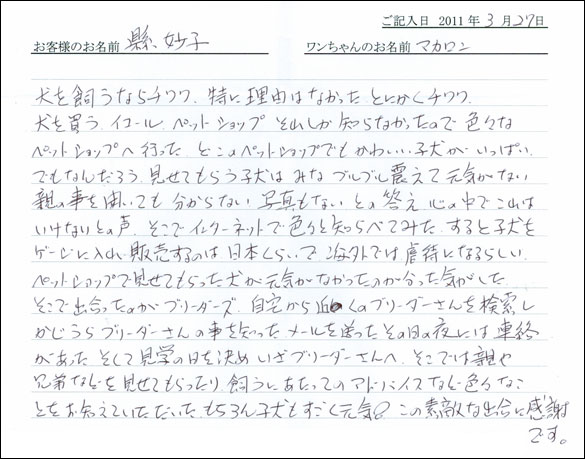 ご記入日 2011年3月27日
お客様のお名前 縣 妙子 ワンちゃんのお名前 マカロン
犬を飼うならチワワ. 特に理由はなかった とにかくチワワ.
犬を買う. イコール. ペットショップ それしか知らなかったので色々な
ペットショップへ行った. どこのペットショップでもかわいい子犬がいっぱい.
でもなんだろう. 見せてもらう子犬はみなブルブル震えて元気がない
親の事を聞いても分からない 写真もない との答え 心の中でこれは
いけないとの声. そこでインターネットで色々と知らべてみた. すると子犬を
ゲージに入れ販売するのは日本くらいで海外では虐待になるらしい.
ペットショップで見せてもらった犬が元気がなかったのが分った気がした.
そこで出合ったのがブリーダーズ. 自宅から近くのブリーダーさんを検索し
かじうらブリーダーさんの事を知った メールを送ったその日の夜には連絡
があった そして見学の日を決め いざブリーダーさんへ. そこでは親や
兄弟などを見せてもらったり 飼うにあたってのアドバイスなど色々なこ
とをお答えていただいた. もちろん子犬もすごく元気 この素敵な出合に感謝
です。